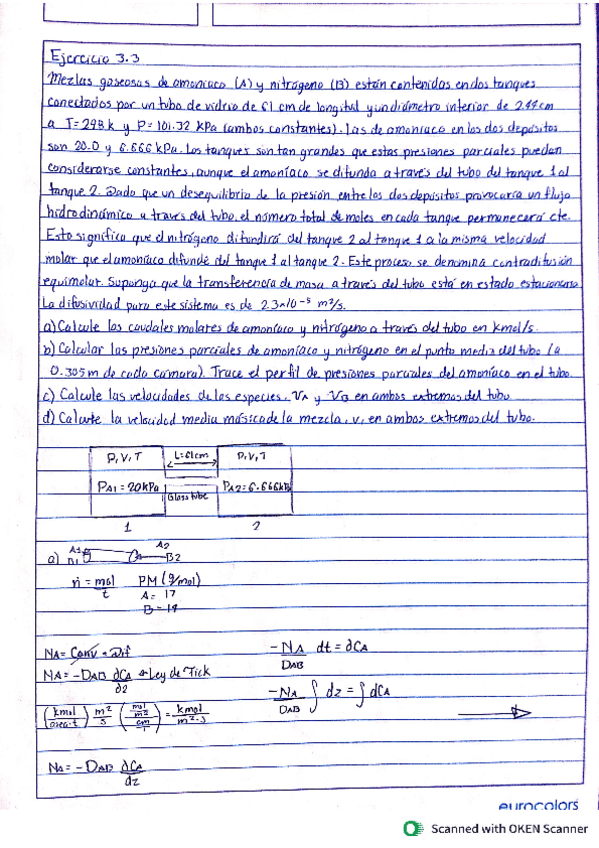 Ejercicio 3.3
Mezlas gaseosas de amoniaco (A) y nitrógeno (B) están contenidas en dos tanques
conectados por un tubo de vidrio de 61 cm de longitud y un diámetro interior de 2.44 cm
a T=298k y P=101.32 KPa (ambos constantes). Las de amoníaco en los dos depósitos
son 20.0 y 6.666 kPa. Los tanques son tan grandes que estas presiones parciales pueden
considerarse constantes, aunque el amoníaco se difunda a través del tubo del tanque 1 al
tanque 2. Dado que un desequilibrio de la presión entre los dos depósitos provocaría un flujo
hidrodinámico a traves del tubo, el número total de moles en cada tanque permanecerá cte.
Esto significa que el nitrógeno difundirá del tanque 2 al tanque 1 a la misma velocidad
molar que el amoníaco difunde del tanque 1 al tanque 2. Este proceso se denomina contradifusión
equimolar. Suponga que la transferencia de masa a través del tubo está en estado estacionario
La difusividad para este sistema es de 2.3×10⁻⁵ m²/s.
a) Calcule los caudales molares de amoníaco y nitrógeno a través del tubo en kmol/s.
b) Calcular las presiones parciales de amoníaco y nitrógeno en el punto medio del tubo (a
0.305 m de cada cámara). Trace el perfil de presiones parciales del amoníaco en el tubo.
c) Calcule las velocidades de las especies, VA y VB en ambos extremos del tubo
d) Calcule la velocidad media másica de la mezcla, v, en ambos extremos del tubo.
P, V, T L=61cm P, V, T
PA1=20kPa Glass tube PA2=6.666kP
1 2
a) A1 B1 A2 B2
ṅ = mol/t PM (g/mol)
A= 17
B=14
NA = Conv + Dif -NA/DAB dt = ∂CA
NA = -DAB ∂CA/∂z Ley de Fick
-NA/DAB ∫ dz = ∫ dCA
(kmol/area·t) m²/s (mol/m³ / cm/1) = kmol/m²·s
NA = -DAB ∂CA/dz
eurocolors
Scanned with OKEN Scanner